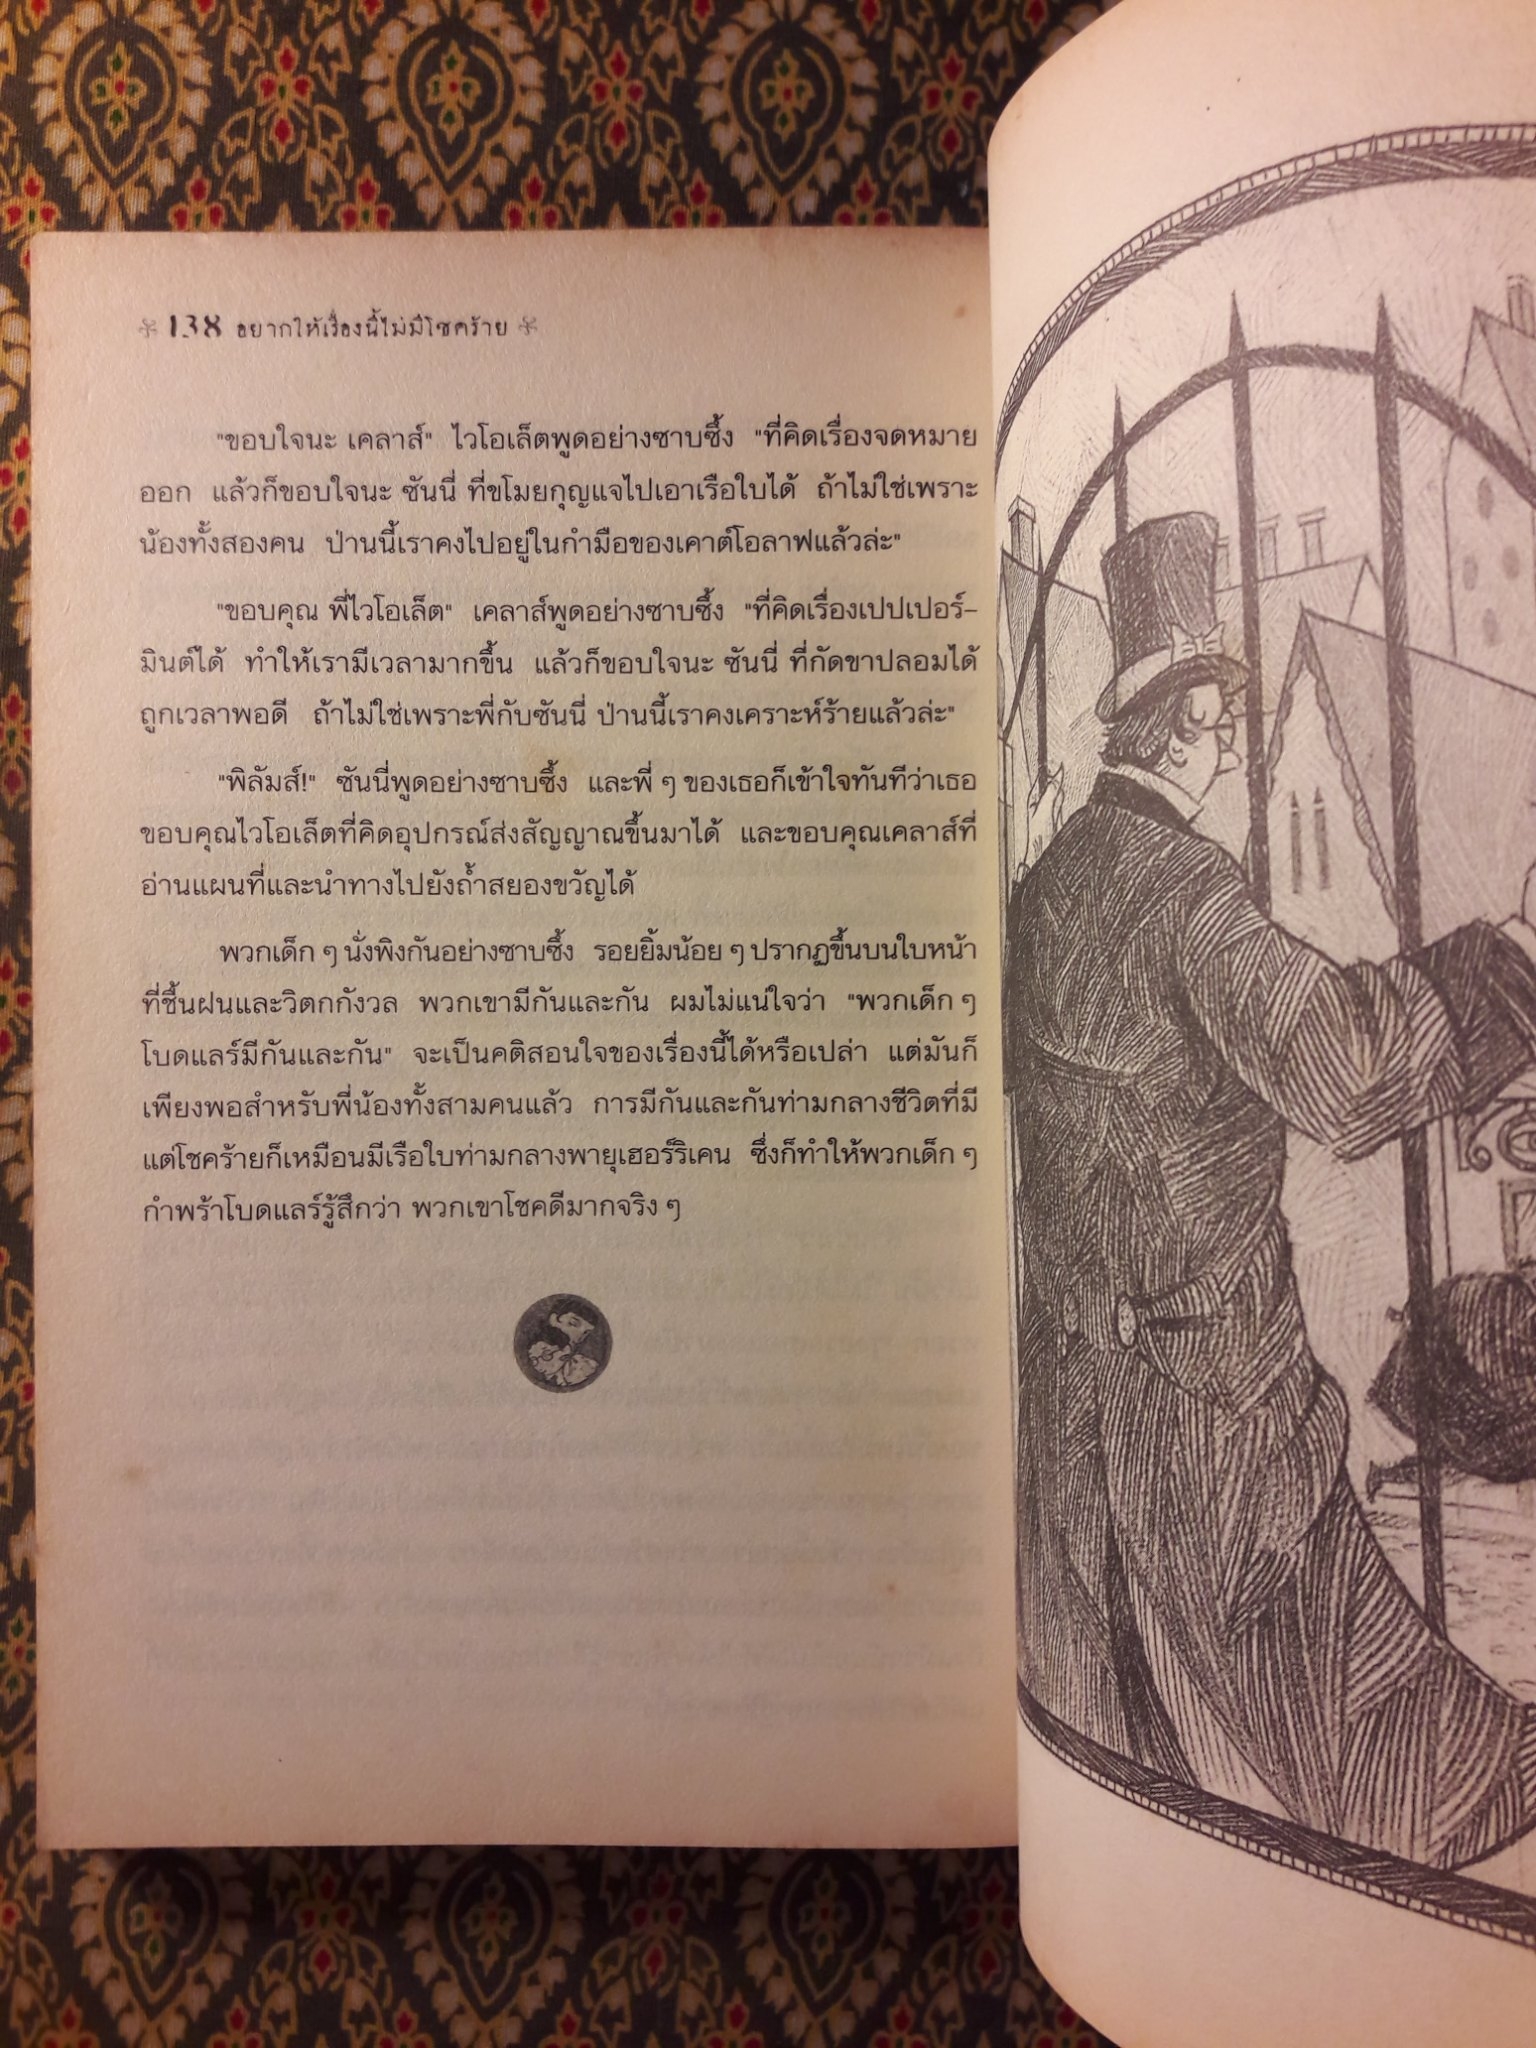 138 อยากให้เรื่องนี้ไม่มีโชคร้าย
"ขอบใจนะ เคลาส์" ไวโอเล็ตพูดอย่างซาบซึ้ง "ที่คิดเรื่องจดหมาย
ออก แล้วก็ขอบใจนะ ซันนี่ ที่ขโมยกุญแจไปเอาเรือใบได้ ถ้าไม่ใช่เพราะ
น้องทั้งสองคน ป่านนี้เราคงไปอยู่ในกำมือของเคาต์โอลาฟแล้วล่ะ"
"ขอบคุณ พี่ไวโอเล็ต" เคลาส์พูดอย่างซาบซึ้ง "ที่คิดเรื่องเปปเปอร์–
มินต์ได้ ทำให้เรามีเวลามากขึ้น แล้วก็ขอบใจนะ ซันนี่ ที่กัดขาปลอมได้
ถูกเวลาพอดี ถ้าไม่ใช่เพราะพี่กับซันนี่ ป่านนี้เราคงเคราะห์ร้ายแล้วล่ะ"
"พิลัมส์!" ซันนี่พูดอย่างซาบซึ้ง และพี่ ๆ ของเธอก็เข้าใจทันทีว่าเธอ
ขอบคุณไวโอเล็ตที่คิดอุปกรณ์ส่งสัญญาณขึ้นมาได้ และขอบคุณเคลาส์ที่
อ่านแผนที่และนำทางไปยังถ้ำสยองขวัญได้
พวกเด็ก ๆ นั่งพิงกันอย่างซาบซึ้ง รอยยิ้มน้อย ๆ ปรากฏขึ้นบนใบหน้า
ที่ชื้นฝนและวิตกกังวล พวกเขามีกันและกัน ผมไม่แน่ใจว่า "พวกเด็ก ๆ
โบดแลร์มีกันและกัน" จะเป็นคติสอนใจของเรื่องนี้ได้หรือเปล่า แต่มันก็
เพียงพอสำหรับพี่น้องทั้งสามคนแล้ว การมีกันและกันท่ามกลางชีวิตที่มี
แต่โชคร้ายก็เหมือนมีเรือใบท่ามกลางพายุเฮอร์ริเคน ซึ่งก็ทำให้พวกเด็ก ๆ
กำพร้าโบดแลร์รู้สึกว่า พวกเขาโชคดีมากจริง ๆ